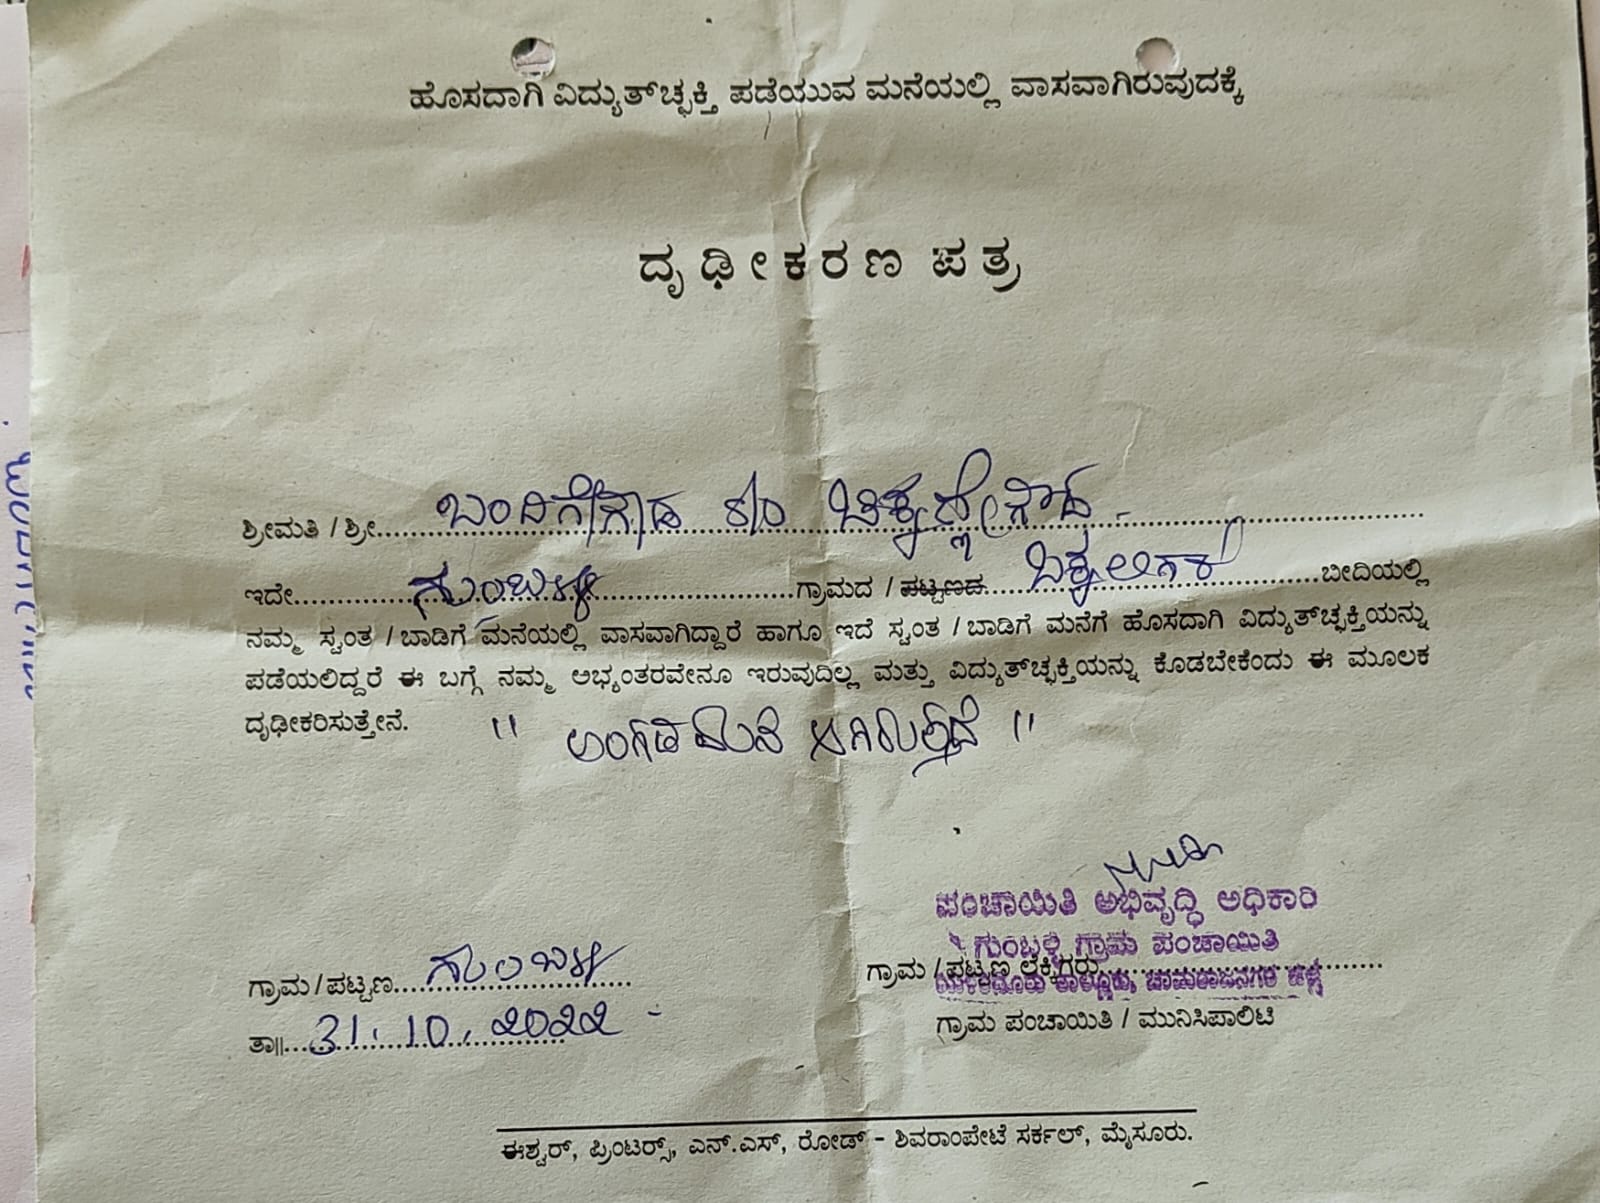 ಹೊಸದಾಗಿ ವಿದ್ಯುತ್‌ಚ್ಛಕ್ತಿ ಪಡೆಯುವ ಮನೆಯಲ್ಲಿ ವಾಸವಾಗಿರುವುದಕ್ಕೆ
ದೃಢೀಕರಣ ಪತ್ರ
ಶ್ರೀಮತಿ / ಶ್ರೀ.......
ಇದೇ....... ಗುಂಬಳ್ಳಿ .......ಗ್ರಾಮದ / ಪಟ್ಟಣದ....... ಒಕ್ಕಲಿಗರ .......ಬೀದಿಯಲ್ಲಿ
ನಮ್ಮ ಸ್ವಂತ / ಬಾಡಿಗೆ ಮನೆಯಲ್ಲಿ ವಾಸವಾಗಿದ್ದಾರೆ ಹಾಗೂ ಇದೆ ಸ್ವಂತ / ಬಾಡಿಗೆ ಮನೆಗೆ ಹೊಸದಾಗಿ ವಿದ್ಯುತ್‌ಚ್ಛಕ್ತಿಯನ್ನು
ಪಡೆಯಲಿದ್ದರೆ ಈ ಬಗ್ಗೆ ನಮ್ಮ ಅಭ್ಯಂತರವೇನೂ ಇರುವುದಿಲ್ಲ ಮತ್ತು ವಿದ್ಯುತ್‌ಚ್ಛಕ್ತಿಯನ್ನು ಕೊಡಬೇಕೆಂದು ಈ ಮೂಲಕ
ದೃಢೀಕರಿಸುತ್ತೇನೆ.
" ಅಂಗಡಿ ಮನೆ ಆಗಿರುತ್ತದೆ "
ಪಂಚಾಯಿತಿ ಅಭಿವೃದ್ಧಿ ಅಧಿಕಾರಿ
ಗುಂಬಳ್ಳಿ ಗ್ರಾಮ ಪಂಚಾಯಿತಿ
ಗ್ರಾಮ / ಪಟ್ಟಣ....... ಗುಂಬಳ್ಳಿ
ಗ್ರಾಮ / ಪಟ್ಟಣ ಲೆಕ್ಕಿಗರು.......
ತಾ||....... 31.10.2022
ಗ್ರಾಮ ಪಂಚಾಯಿತಿ / ಮುನಿಸಿಪಾಲಿಟಿ
ಈಶ್ವರ್, ಪ್ರಿಂಟರ‍್ಸ್, ಎನ್.ಎಸ್, ರೋಡ್ - ಶಿವರಾಂಪೇಟೆ ಸರ್ಕಲ್, ಮೈಸೂರು.